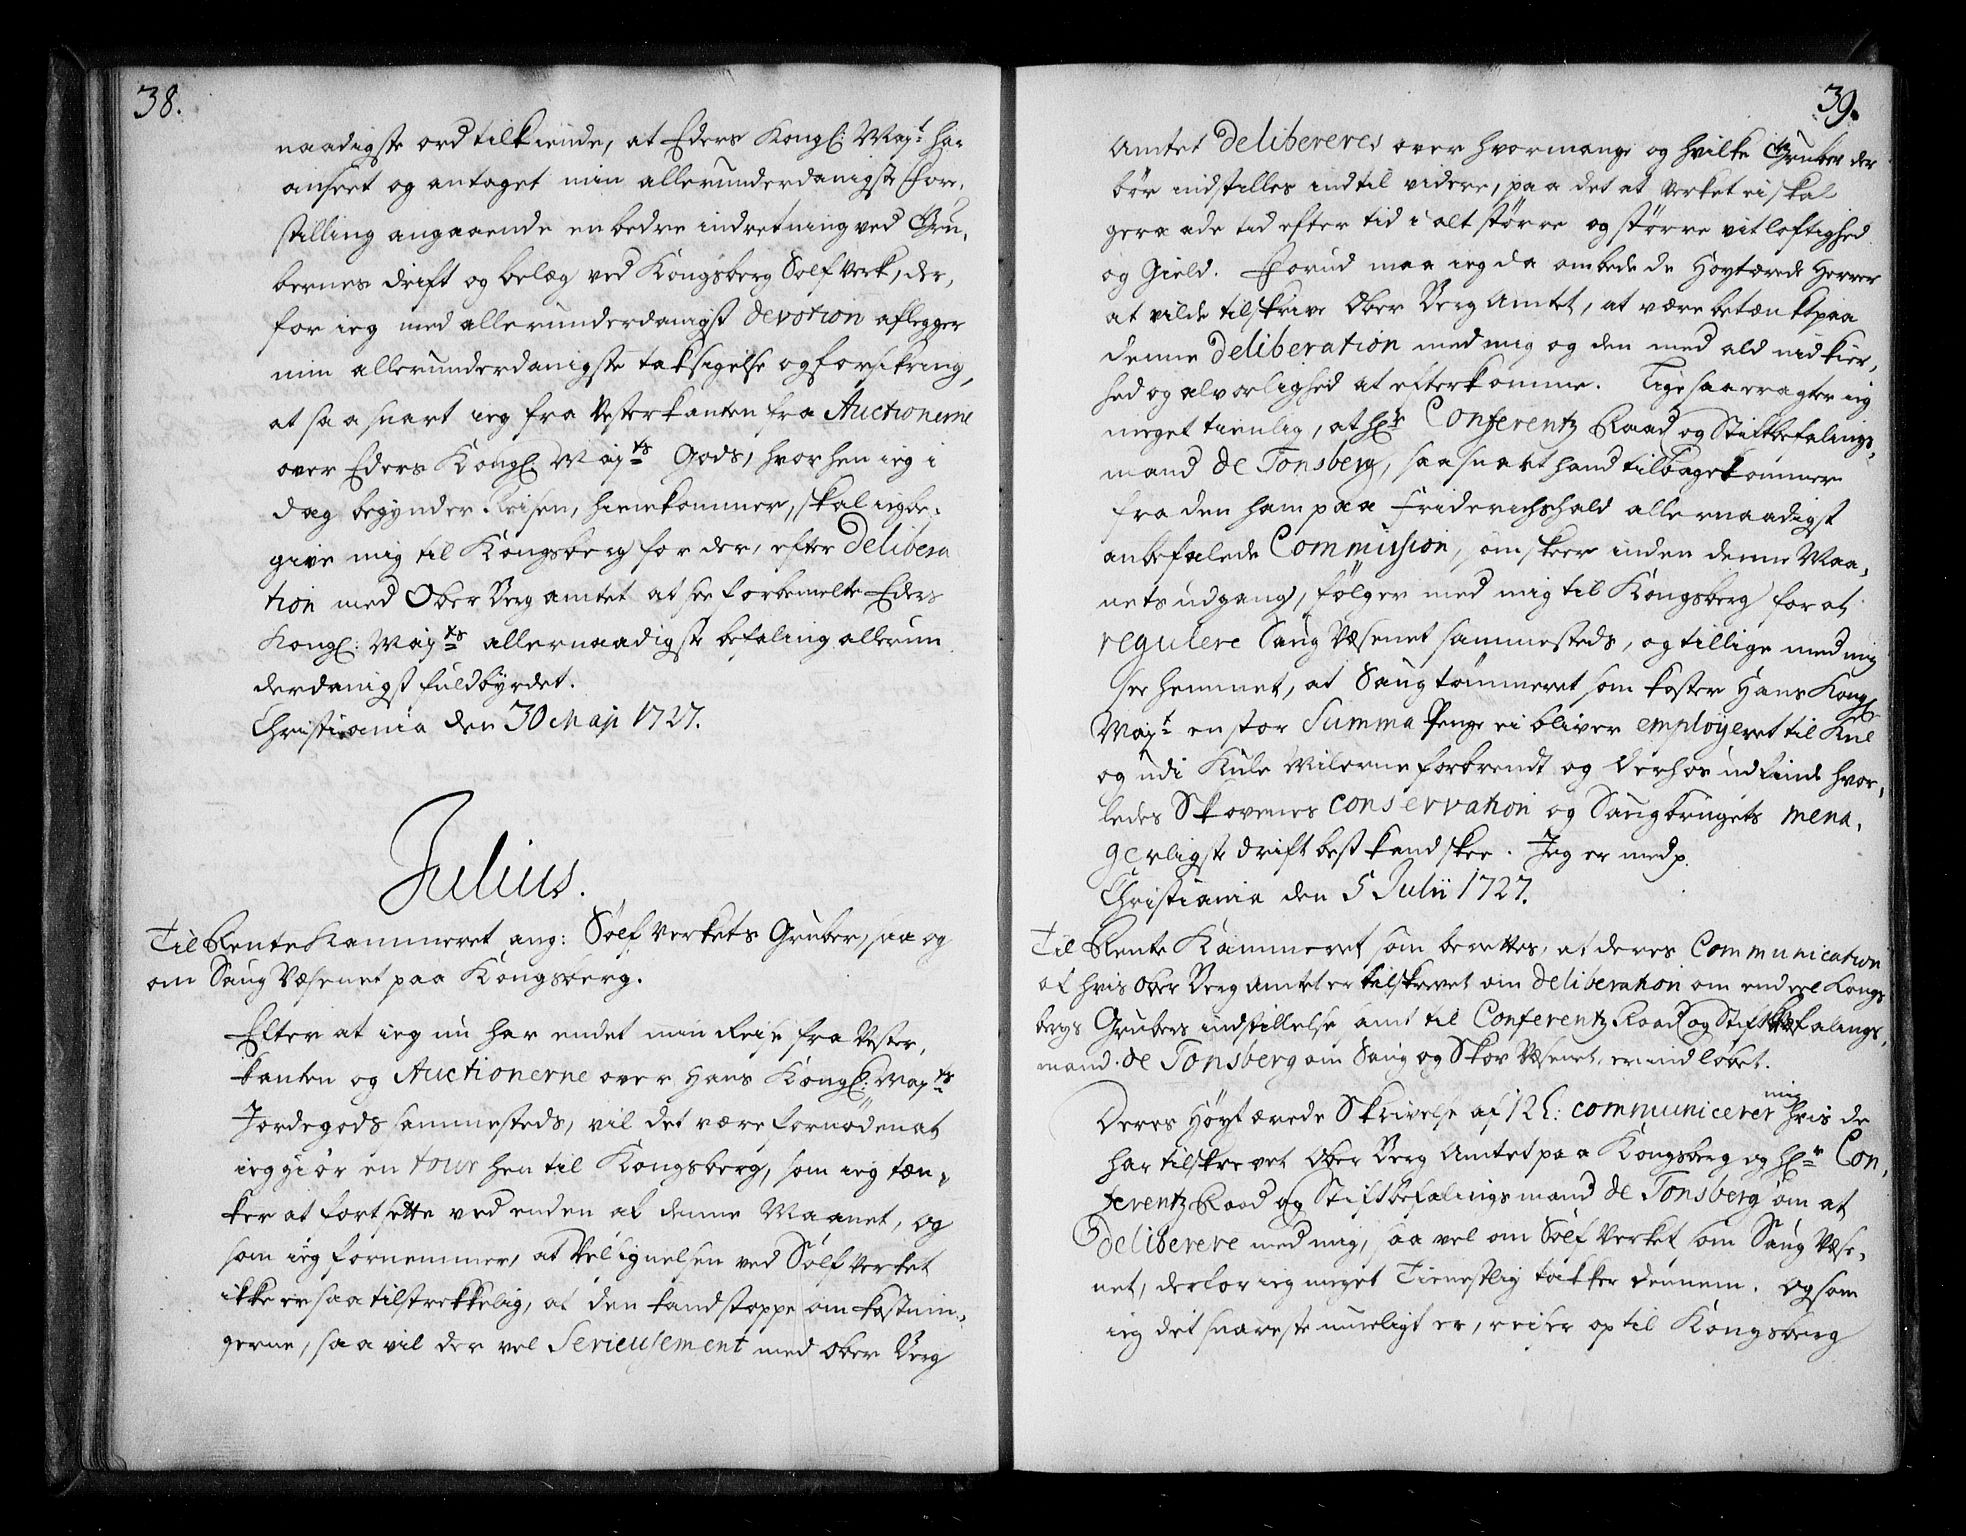 38.
naadigste ord tilkiende, at Eders Kongl: Mayt. har
anseet og antaget min allerunderdanigste Fore,
stilling angaaende en bedre indretning ved Gru,
bernes drift og belæg ved Kongsberg Sølf Verk, der,
for ieg med allerunderdanigst devotion aflegger
min allerunderdanigste taksigelse og forsikring,
at saa snart ieg fra Vesterkanten fra Auctionerne
over Eders Kongl. Mayts Gods, hvorhen ieg i
dag begynder Reisen, hiemkommer, skal ieg be,
give mig til Kongsberg for der, efter Delibera
tion med Ober Berg amtet at see forbemelte Eders
Kongl: Mayts allernaadigste befaling allerun
derdanigst fuldbyrdet.
Christiania den 30 Maji 1727.
Julius.
Til Rente Kammeret ang: Sølf Verkets Gruber, saa og
om Saug Væsenet paa Kongsberg.
Efter at ieg nu har endet min Reise fra Vester,
kanten og Auctionerne over Hans Kongl: Mayts
Jordegods sammesteds, vil det være fornøden at
ieg giør en tour hen til Kongsberg, som ieg tæn,
ker at fortsette ved enden af denne Maanet, og
som ieg fornemmer, at Velsignelsen ved Sølf Verket
ikke er saa tilstrekkelig, at den kand stoppe omkostnin,
gerne, saa vil der vel Serieusement med Ober Berg
39.
Amtet delibereres over hvormange og hvilke Gruber der
bør indstilles indtil videre, paa det at Verket ei skal
geraade tid efter tid i alt større og større vitløftighed
og Gield. Forud maa ieg da ombede de Høytærede Herrer
at vilde tilskrive Ober Berg Amtet, at være betænkt paa
denne deliberation med mig og den med ald nidkier,
hed og alvorlighed at efterkomme. Ligesaa eragter ieg
meget tienlig, at Hr. Conferentz Raad og Stiftbefalings,
mand de Tonsberg, saa snart hand tilbagekommer
fra den ham paa Friderichshald allernaadigst
anbefalede Commission, om skeer inden denne Maa,
nets udgang, følger med mig til Kongsberg for at
regulere Saug Væsenet sammesteds, og tillige med mig
see hemmet, at Saugtømmeret som koster Hans Kongl
Mayt. en stor Summa Penge ei bliver employeret til Kul
og udi Kule Milerne forbrendt og derhos udfinde hvor,
ledes Skovenes conservation og Saugbrugets mena,
gerligste drift best kand skee. Jeg er med p.
Christiania den 5 Julii 1727.
Til Rente Kammeret som berettes, at deres Communication
af hvis Ober Berg Amtet er tilskrevet om deliberation om endeel Kongs
bergs Grubers indstillelse samt til Conferentz Raad og Stiftbefalings,
mand de Tonsberg om Saug og Skov Væsenet, er indløbet.
Deres Høyt ærede Skrivelse af 12 h: communicerer mig hvis de
har tilskrevet Ober Berg Amtet paa Kongsberg og Hr. Con,
ferentz Raad og Stiftbefalingsmand de Tonsberg om at
deliberere med mig, saa vel om Sølf Verket som Saug Væse,
net, derfor ieg meget Tienestlig takker dennem. Og som
ieg det snareste mueligt er, reiser op til Kongsberg